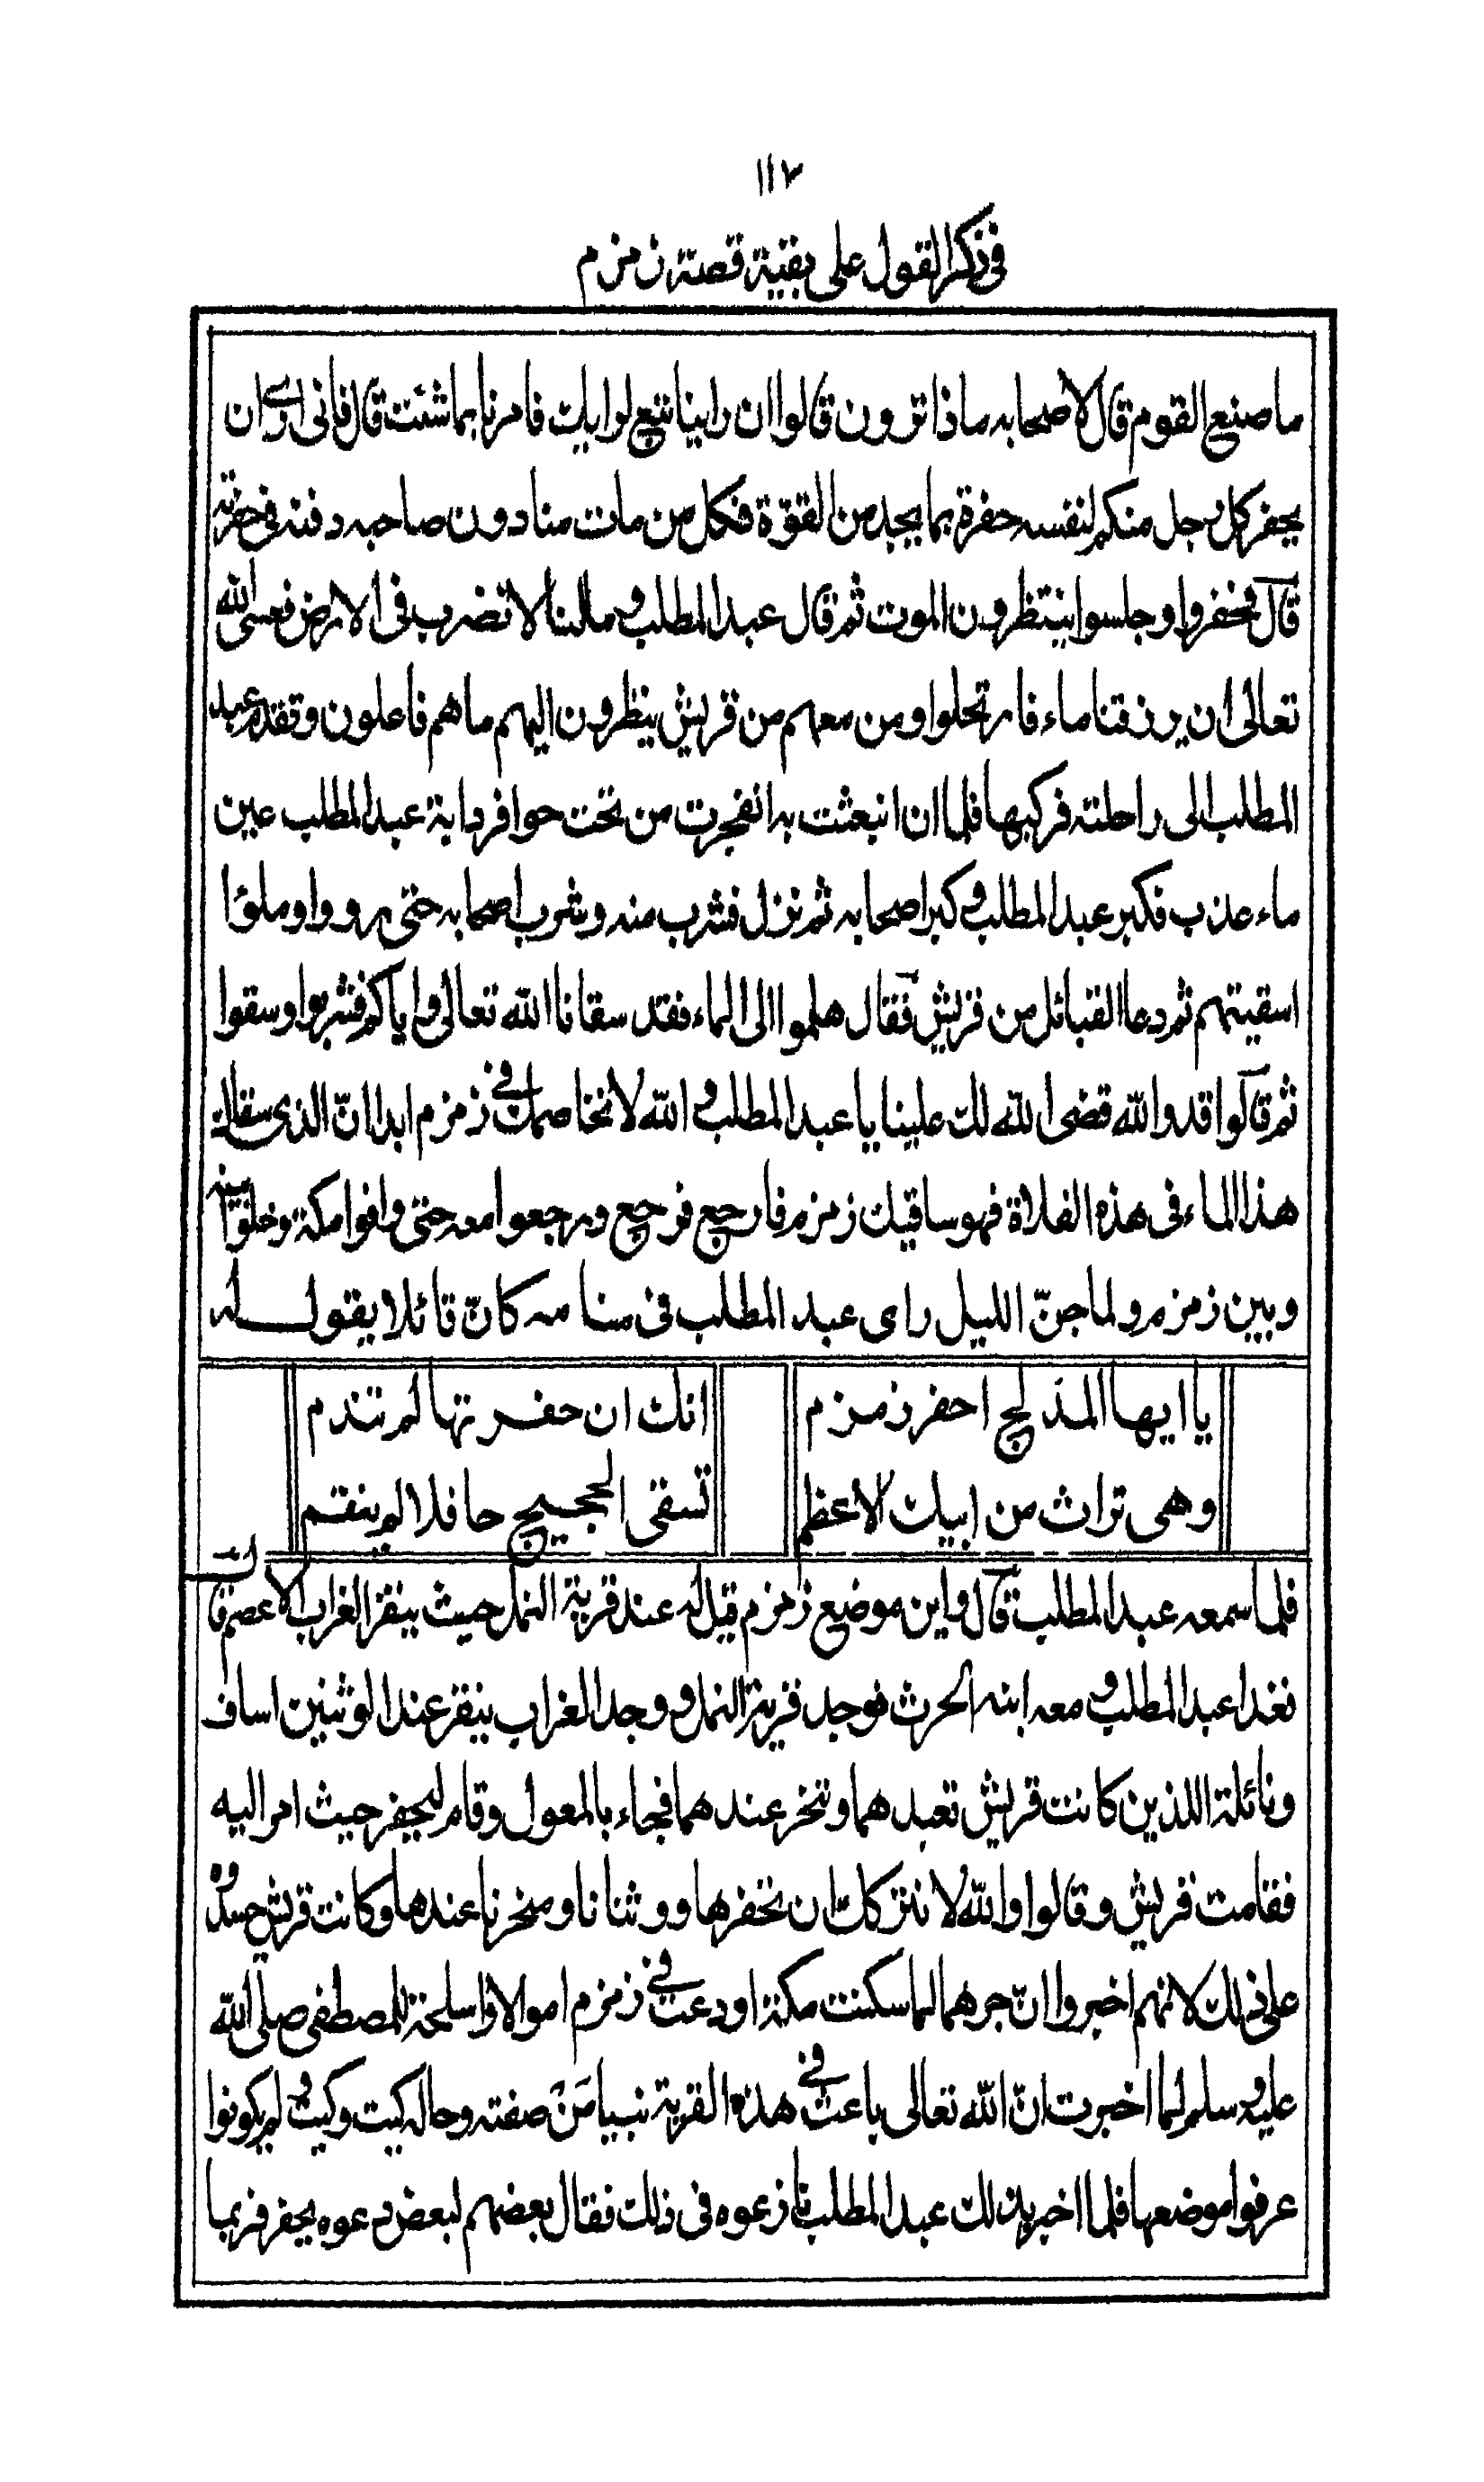 ١١٧
فى ذكر القول على بقية قصة زمزم
ما صنع القوم قال لاصحابه ما ذا ترون قالوا ان راينا تتبع لرايك فامرنا بما شئت قال فانى ارى ان
يحفر كل رجل منكم لنفسه حفرة بما يجد من القوّة فكل من مات منا دون صاحبه دفنه فى حفرته
قال فحفروا وجلسوا ينتظرون الموت ثم قال عبد المطلب وما لنا لا تضرب فى الارض فعسى الله
تعالى ان يرزقنا ماء فارتحلوا ومن معهم من قريش ينظرون اليهم ما هم فاعلون وتقدم عبد
المطلب الى راحلته فركبها فلما ان انبعثت به انفجرت من تحت حوافر دابة عبد المطلب عين
ماء عذب فكبر عبد المطلب وكبر اصحابه ثم نزل فشرب منه وشرب اصحابه حتى رووا وملؤا
اسقيتهم ثم دعا القبائل من قريش فقال هلموا الى الماء فقد سقانا الله تعالى واياكم فشربوا وسقوا
ثم قالوا قد والله قضى الله لك علينا يا عبد المطلب والله لا نخاصمك فى زمزم ابدا انّ الذى سقاك
هذا الماء فى هذه الفلاة فهو ساقيك زمزم فارجع فرجع ورجعوا معه حتى وافوا مكة وخلوا بينه
وبين زمزم ولما جنّ الليل راى عبد المطلب فى منامه كانّ قائلا يقول له
يا ايها المدلج احفر زمزم انك ان حفرتها لم تندم
وهى تراث من ابيك الاعظم تسقى الحجيج حافلا لم ينقم
فلما سمعه عبد المطلب قال واين موضع زمزم قيل له عند قرية النمل حيث ينقر الغراب الاعصم قال
فغدا عبد المطلب ومعه ابنه الحرث فوجد قرية النمل ووجد الغراب ينقر عند الوثنين اساف
ونائلة اللذين كانت قريش تعبدهما وتنحر عندهما فجاء بالمعول وقام ليحفر حيث امر اليه
فقامت قريش وقالوا والله لا نتركك ان تحفرها ووثنانا ومنحرنا عندها وكانت قريش حسدوه
على ذلك لانهم اخبروا انّ جرهما لما سكنت مكة اودعت فى زمزم اموالا واسلحة للمصطفى صلى الله
عليه وسلم لما اخبرت انّ الله تعالى باعث فى هذه القرية نبيا مَنْ صفته وحاله كيت وكيت لم يكونوا
عرفوا موضعها فلما اخبر بذلك عبد المطلب نازعوه فى ذلك فقال بعضهم لبعض دعوه يحفر فربما